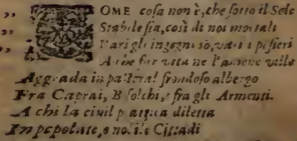 „ COME cosa non è, che sotto il Sole
„ Stabile sia, così di noi mortali
„ Varii gli ingegni sò, varii i pesieri
A che far vita ne l'amene valle
Aggrada in pastoral frondoso albergo
Fra Caprai, Bifolchi, e fra gli Armenti.
A chi la civil pratica diletta
In popolate, e nobili Cittadi